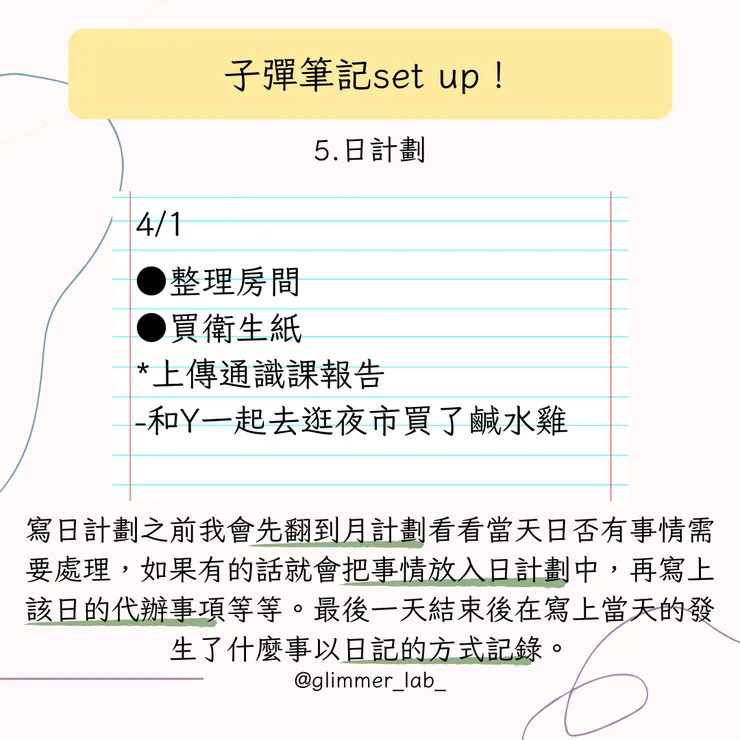 子彈筆記set up！
5.日計劃
4/1
●整理房間
●買衛生紙
*上傳通識課報告
-和Y一起去逛夜市買了鹹水雞
寫日計劃之前我會先翻到月計劃看看當天日否有事情需
要處理，如果有的話就會把事情放入日計劃中，再寫上
該日的代辦事項等等。最後一天結束後在寫上當天的發
生了什麼事以日記的方式記錄。
@glimmer_lab_